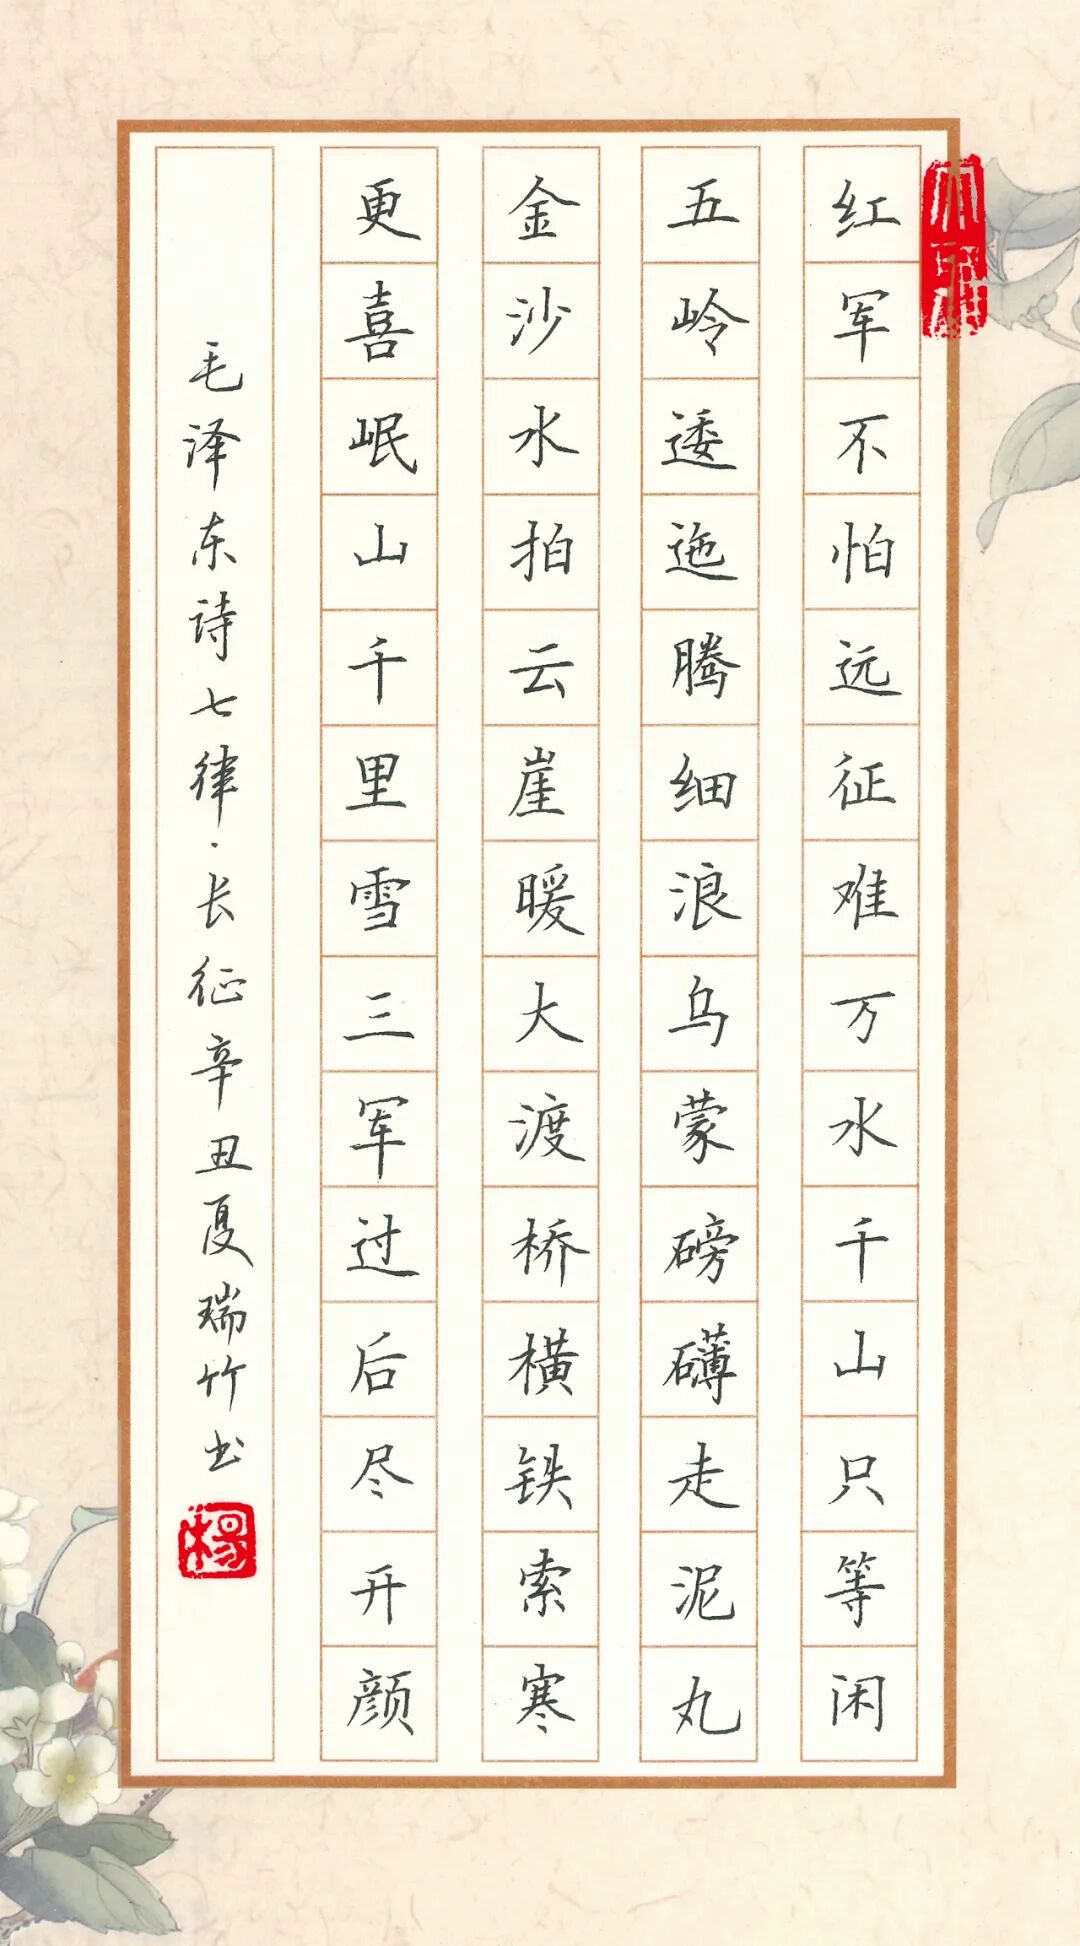 红军不怕远征难万水千山只等闲
五岭逶迤腾细浪乌蒙磅礴走泥丸
金沙水拍云崖暖大渡桥横铁索寒
更喜岷山千里雪三军过后尽开颜
毛泽东诗七律·长征辛丑夏瑞竹书
杨